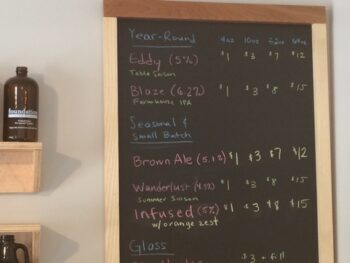 Year-Round 4oz 10oz 32oz 64oz
Eddy (5%) $1 $3 $7 $12
Table Saison
Blaze (6.2%) $1 $3 $8 $15
Farmhouse IPA
Seasonal &
Small Batch
Brown Ale (5.1%) $1 $3 $7 $12
Wanderlust $1 $3 $8 $15
Summer Saison
Infused (5%) $1 $3 $8 $15
w/orange zest
Glass
$3 + fill
foundation